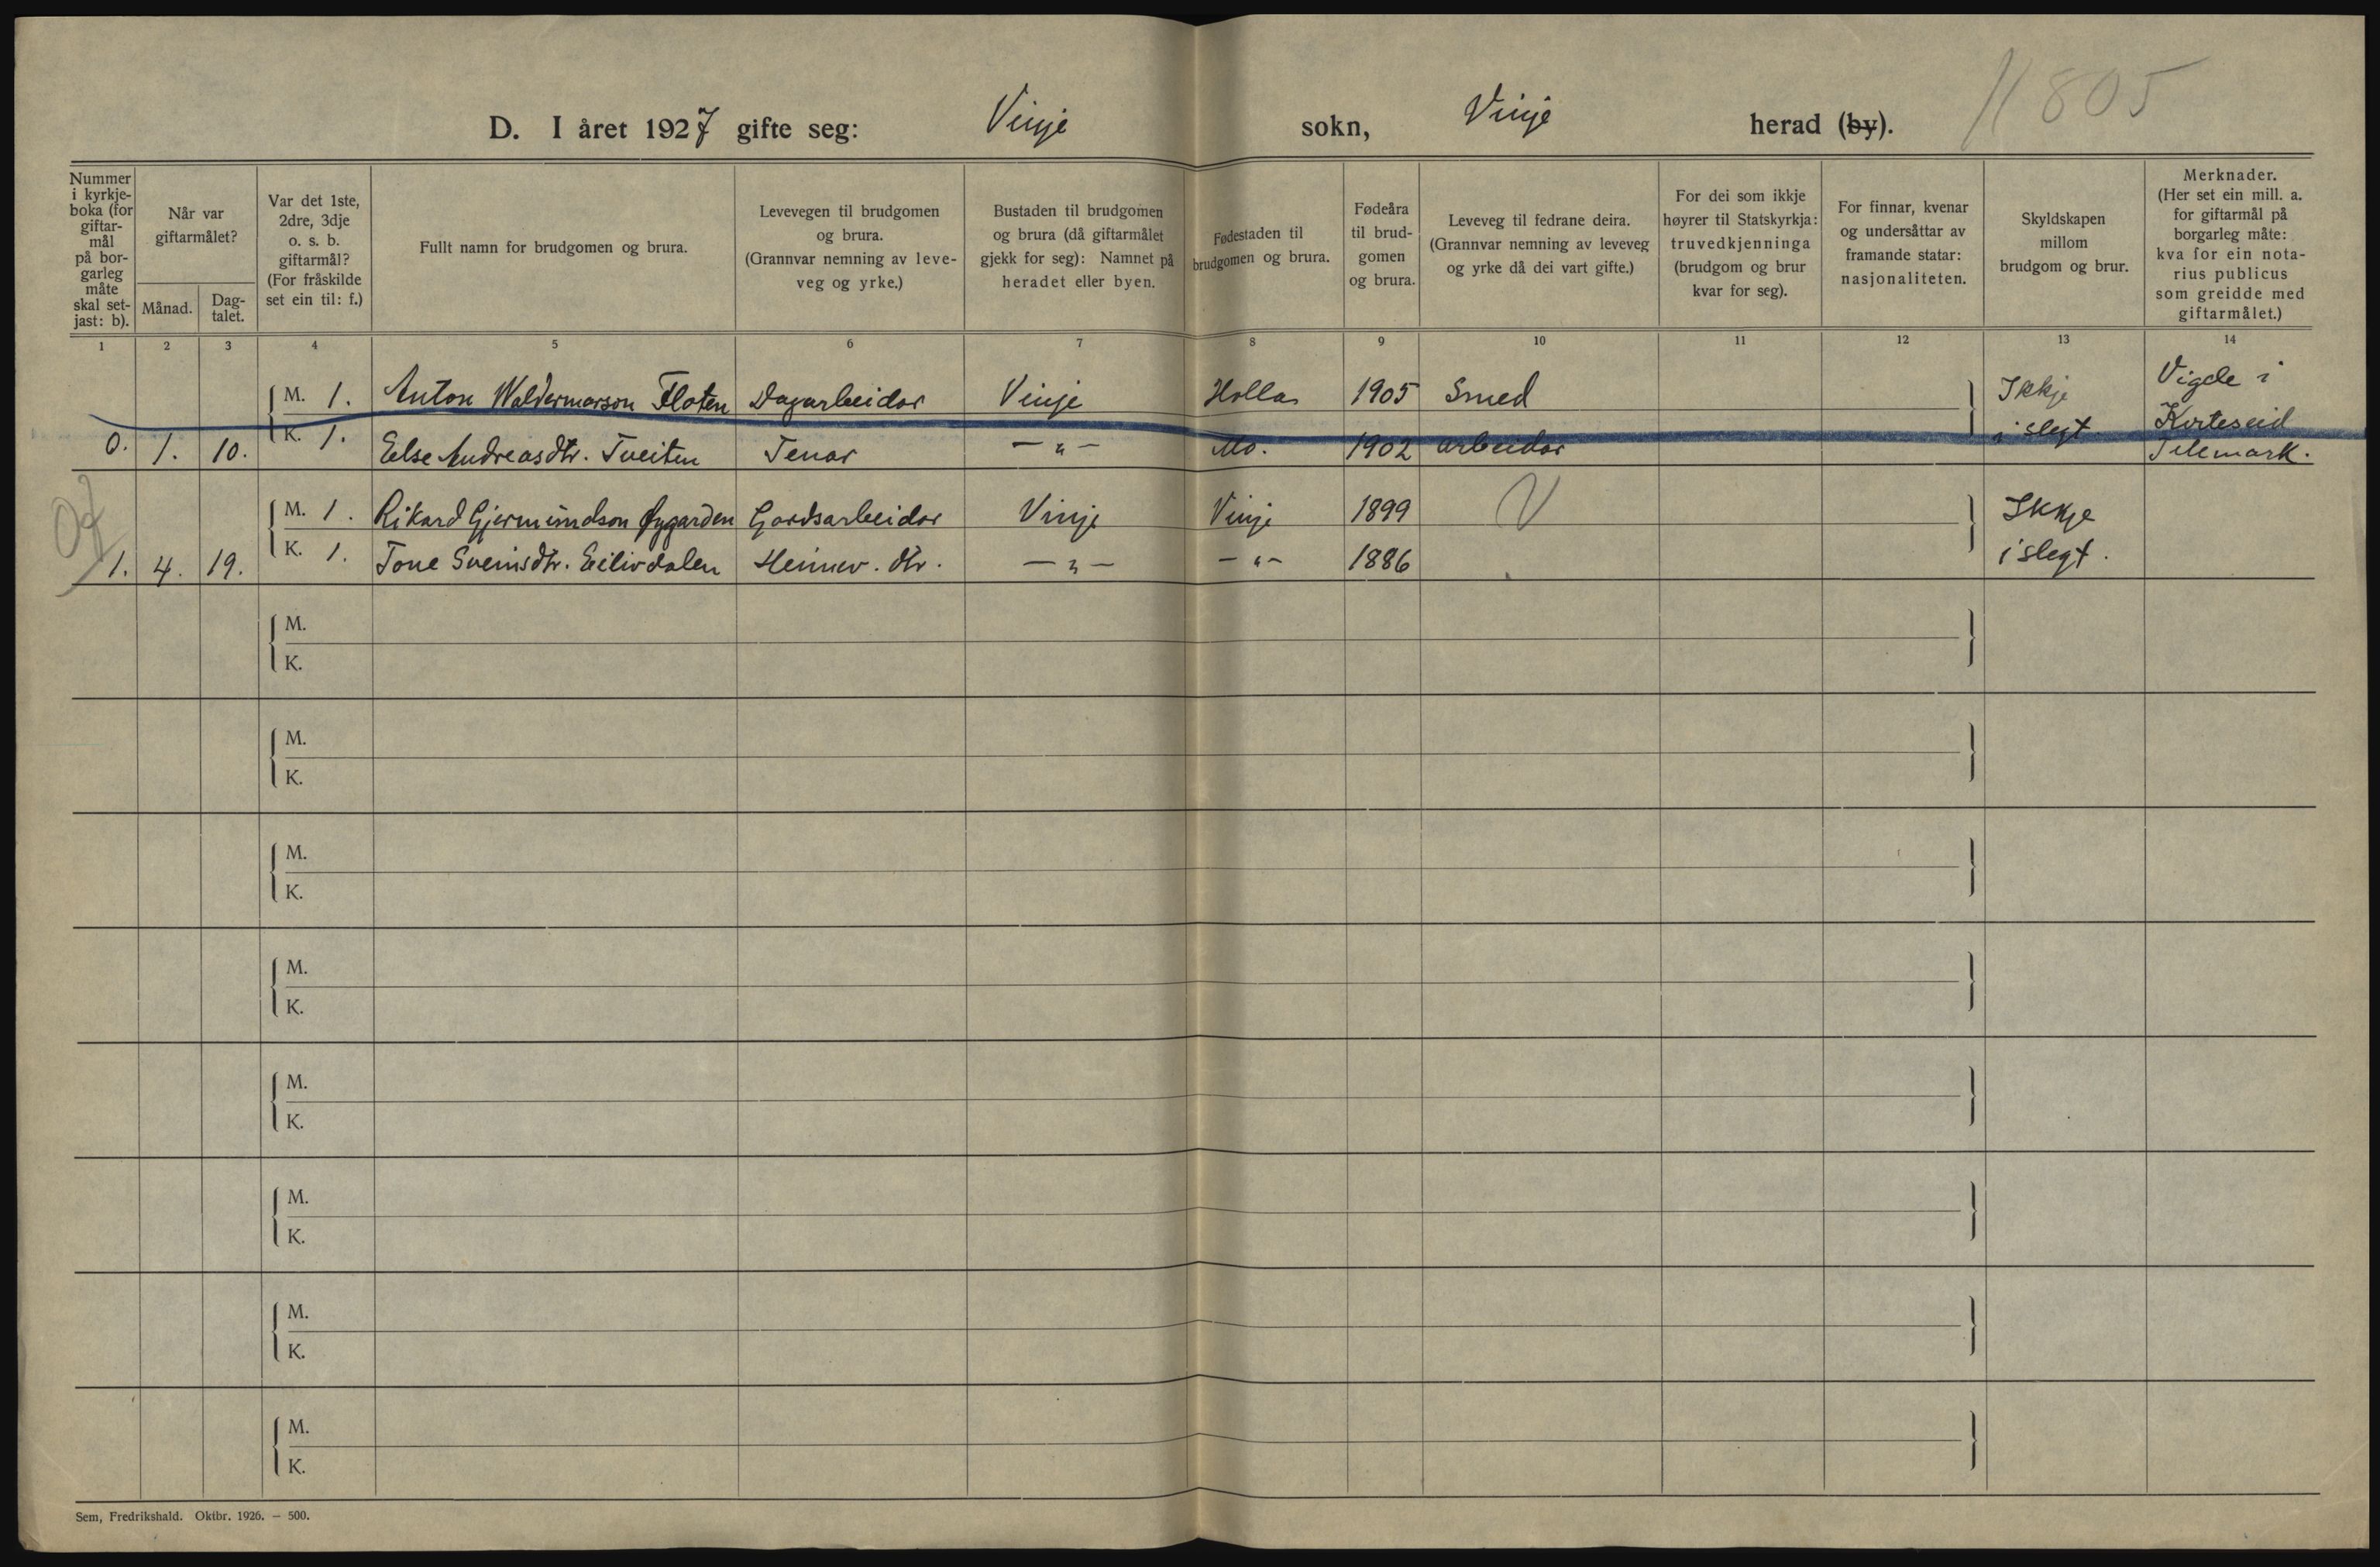 11805
D. I året 1927 gifte seg: Vinje sokn, Vinje herad (by).
Nummer i kyrkje-boka (for giftar-mål på bor-garleg måte skal set-jast: b).
Når var giftarmålet?
Månad.
Dag-talet.
Var det 1ste, 2dre, 3dje o. s. b. giftarmål? (For fråskilde set ein til: f.)
Fullt namn for brudgomen og brura.
Levevegen til brudgomen og brura. (Grannvar nemning av leve-veg og yrke.)
Bustaden til brudgomen og brura (då giftarmålet gjekk for seg): Namnet på heradet eller byen.
Fødestaden til brudgomen og brura.
Fødeåra til brud-gomen og brura.
Leveveg til fedrane deira. (Grannvar nemning av leveveg og yrke då dei vart gifte.)
For dei som ikkje høyrer til Statskyrkja: truvedkjenninga (brudgom og brur kvar for seg).
For finnar, kvenar og undersåttar av framande statar: nasjonaliteten.
Skyldskapen millom brudgom og brur.
Merknader. (Her set ein mill. a. for giftarmål på borgarleg måte: kva for ein nota-rius publicus som greidde med giftarmålet.)
1 2 3 4 5 6 7 8 9 10 11 12 13 14
M. 1. Anton Waldemarson Floten Dagarbeidar Vinje Holla 1905 Smed Ikkje Vigde i
0. 1. 10. K. 1. Else Andreasdtr. Tveiten Tenar — " — Mo. 1902 arbeidar i slegt Kviteseid
Telemark.
M. 1. Rikard Gjermundson Øygarden Gardsarbeidar Vinje Vinje 1899 V Ikkje
1. 4. 19. K. 1. Tone Sveinsdtr. Eilivdalen Heimev. dtr. — " — — " — 1886 i slegt.
M.
K.
M.
K.
M.
K.
M.
K.
M.
K.
M.
K.
M.
K.
M.
K.
Sem, Fredrikshald. Oktbr. 1926. — 500.